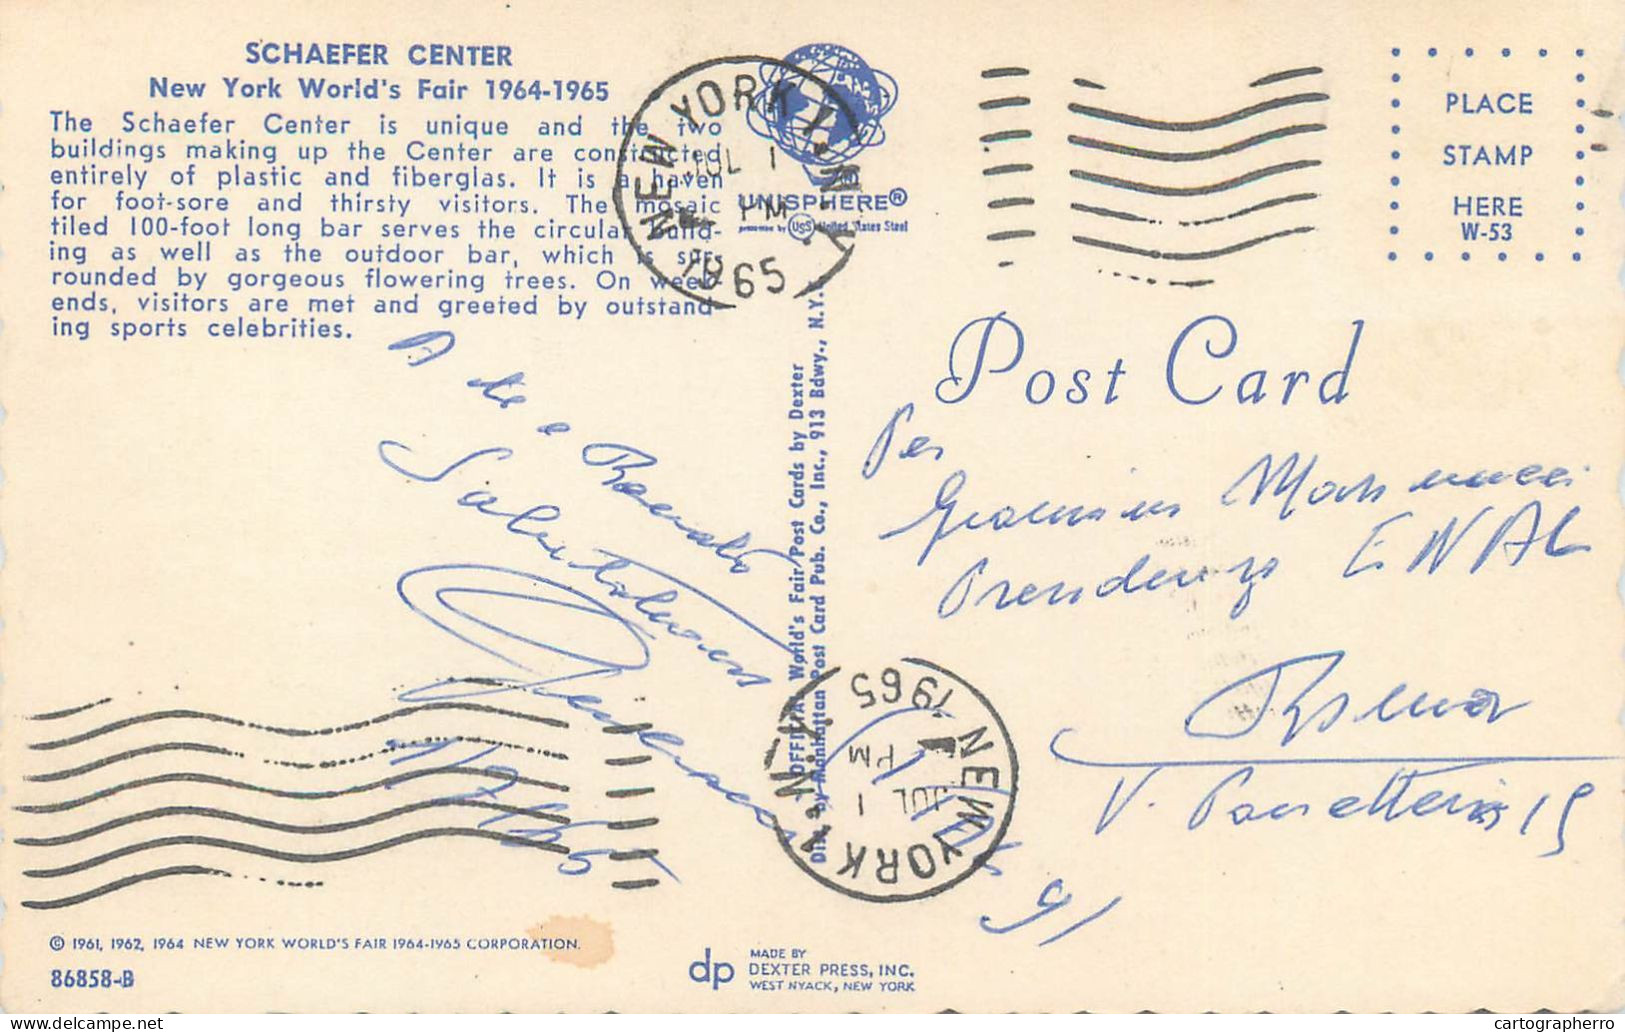 SCHAEFER CENTER
New York World's Fair 1964-1965
The Schaefer Center is unique and the two
buildings making up the Center are constructed
entirely of plastic and fiberglas. It is a haven
for foot-sore and thirsty visitors. The mosaic
tiled 100-foot long bar serves the circular build-
ing as well as the outdoor bar, which is sur-
rounded by gorgeous flowering trees. On week-
ends, visitors are met and greeted by outstand-
ing sports celebrities.
NEW YORK 1, N.Y.
JUL 1
PM
1965
UNISPHERE®
presented by USS United States Steel
PLACE
STAMP
HERE
W-53
Post Card
A te e
Salutissimi
1/7/65
OFFICIAL World's Fair/Post Cards by Dexter
Dist. by Manhattan Post Card Pub. Co., Inc., 913 Bdwy., N.Y.C.
Per
ENAL
Roma
V. 19
NEW YORK 1, N.Y.
JUL 1
PM
1965
© 1961, 1962, 1964 NEW YORK WORLD'S FAIR 1964-1965 CORPORATION.
86858-B
dp MADE BY
DEXTER PRESS, INC.
WEST NYACK, NEW YORK
cartographerro